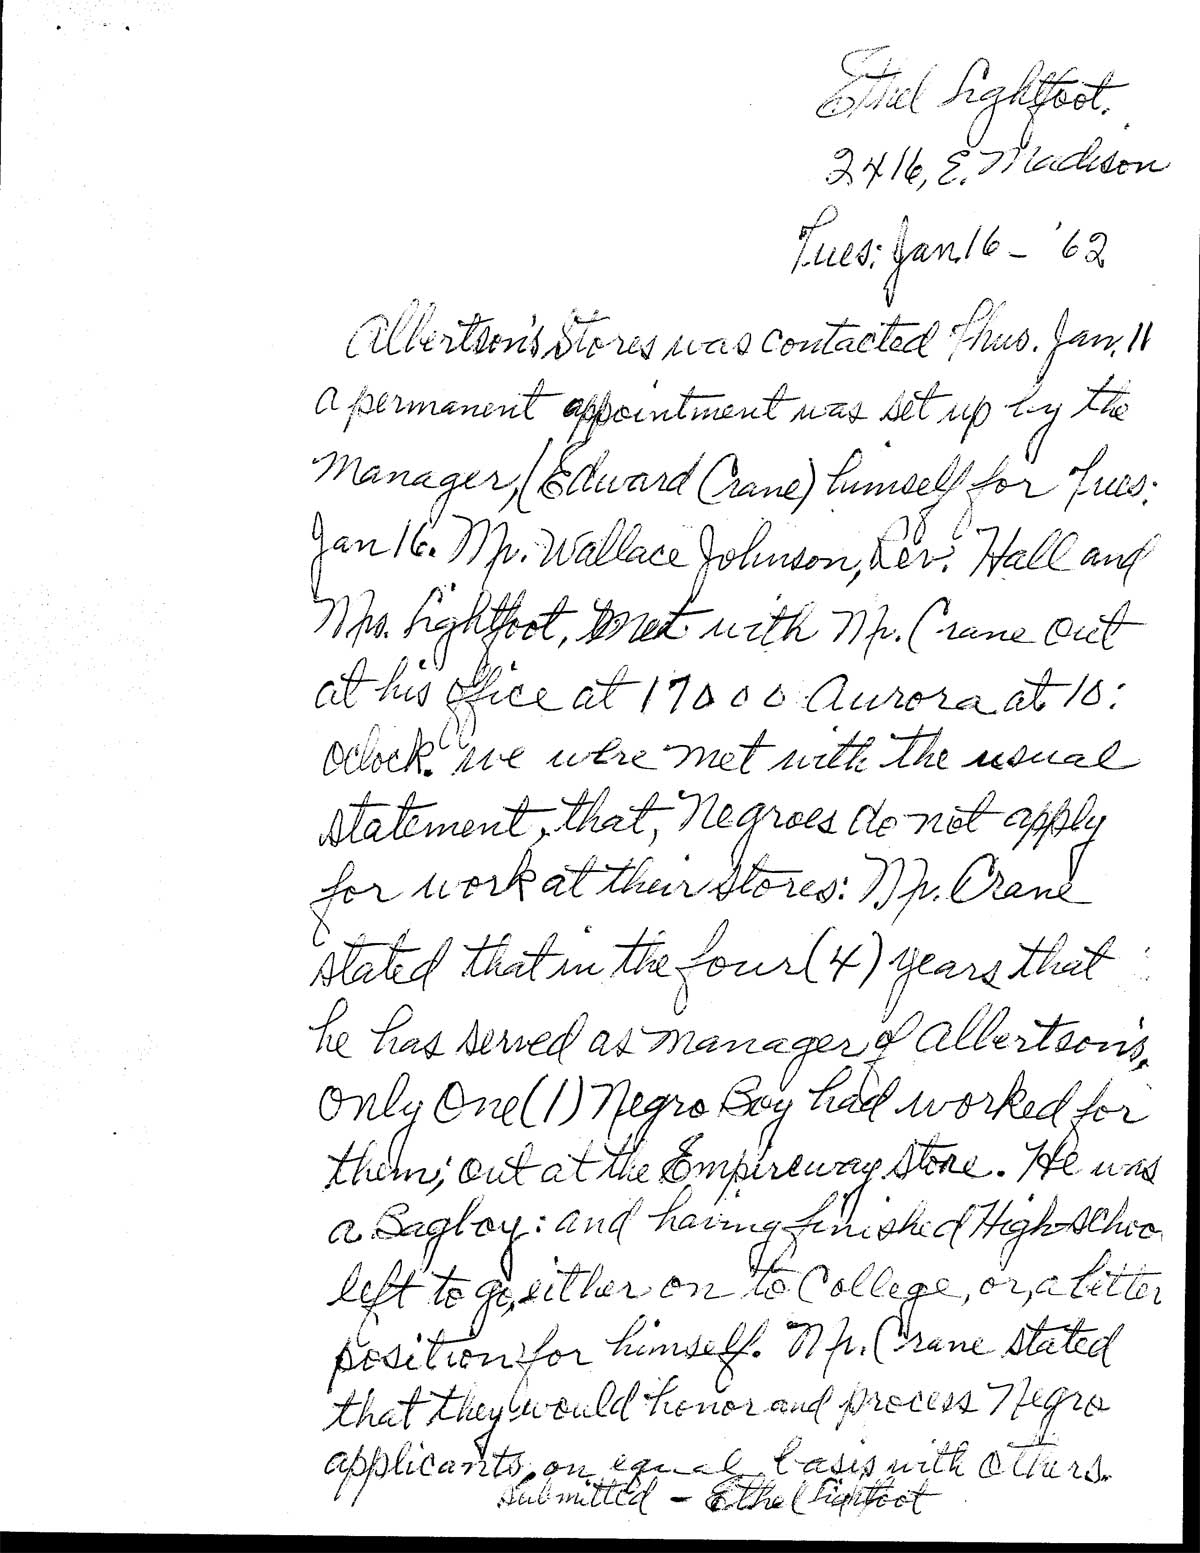 Ethel Lightfoot.
2416, E. Madison
Tues: Jan. 16 - '62
Albertson's Stores was contacted Thus. Jan. 11
a permanent appointment was set up by the
Manager, (Edward Crane) himself for Tues:
Jan 16. Mr. Wallace Johnson, Rev. Hall and
Mrs. Lightfoot, met with Mr. Crane out
at his office at 17000 Aurora at 10:
Oclock. we were met with the usual
statement, that, Negroes do not apply
for work at their stores: Mr. Crane
stated that in the four (4) years that
he has served as manager of Albertson's,
only One (1) Negro Boy had worked for
them; out at the Empireway store. He was
a Bagboy: and having finished High-schoo
left to go, either on to College, or, a better
position for himself. Mr. Crane stated
that they would honor and process Negro
applicants, on equal basis with others.
Submitted - Ethel Lightfoot